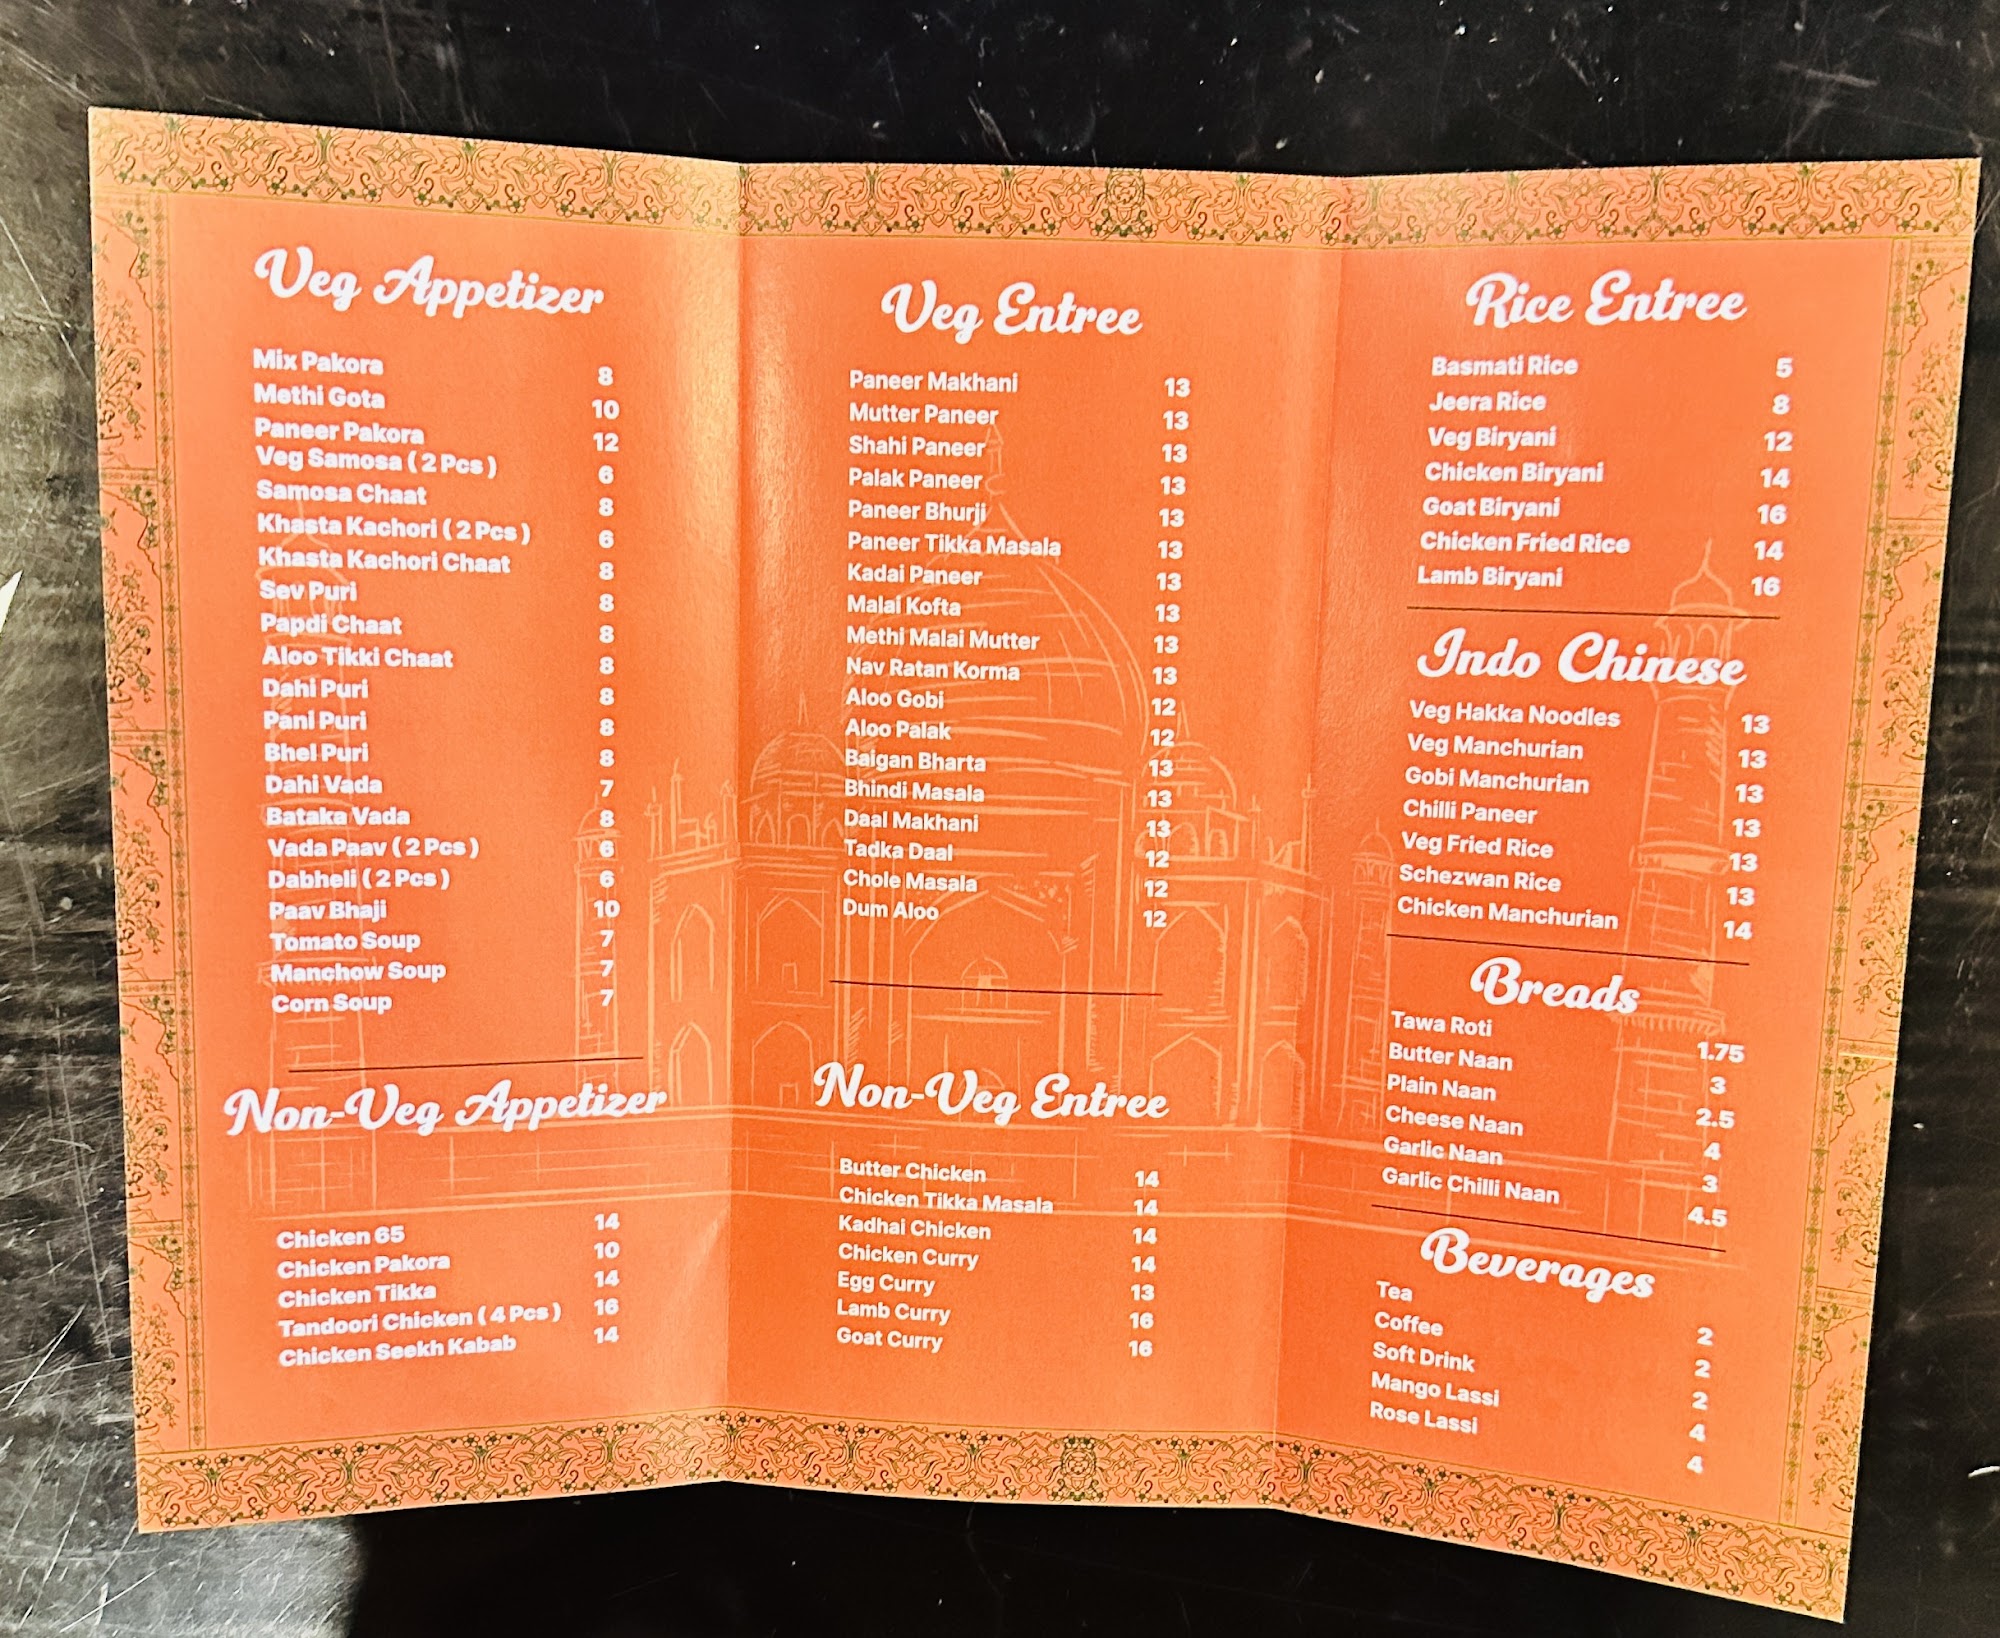 Veg Appetizer
Mix Pakora 8
Methi Gota 10
Paneer Pakora 12
Veg Samosa ( 2 Pcs ) 6
Samosa Chaat 8
Khasta Kachori ( 2 Pcs ) 6
Khasta Kachori Chaat 8
Sev Puri 8
Papdi Chaat 8
Aloo Tikki Chaat 8
Dahi Puri 8
Pani Puri 8
Bhel Puri 8
Dahi Vada 7
Bataka Vada 8
Vada Paav ( 2 Pcs ) 6
Dabheli ( 2 Pcs ) 6
Paav Bhaji 10
Tomato Soup 7
Manchow Soup 7
Corn Soup 7
Non-Veg Appetizer
Chicken 65 14
Chicken Pakora 10
Chicken Tikka 14
Tandoori Chicken ( 4 Pcs ) 16
Chicken Seekh Kabab 14
Veg Entree
Paneer Makhani 13
Mutter Paneer 13
Shahi Paneer 13
Palak Paneer 13
Paneer Bhurji 13
Paneer Tikka Masala 13
Kadai Paneer 13
Malai Kofta 13
Methi Malai Mutter 13
Nav Ratan Korma 13
Aloo Gobi 12
Aloo Palak 12
Baigan Bharta 13
Bhindi Masala 13
Daal Makhani 13
Tadka Daal 12
Chole Masala 12
Dum Aloo 12
Non-Veg Entree
Butter Chicken 14
Chicken Tikka Masala 14
Kadhai Chicken 14
Chicken Curry 14
Egg Curry 13
Lamb Curry 16
Goat Curry 16
Rice Entree
Basmati Rice 5
Jeera Rice 8
Veg Biryani 12
Chicken Biryani 14
Goat Biryani 16
Chicken Fried Rice 14
Lamb Biryani 16
Indo Chinese
Veg Hakka Noodles 13
Veg Manchurian 13
Gobi Manchurian 13
Chilli Paneer 13
Veg Fried Rice 13
Schezwan Rice 13
Chicken Manchurian 14
Breads
Tawa Roti 1.75
Butter Naan 3
Plain Naan 2.5
Cheese Naan 4
Garlic Naan 3
Garlic Chilli Naan 4.5
Beverages
Tea 2
Coffee 2
Soft Drink 2
Mango Lassi 4
Rose Lassi 4